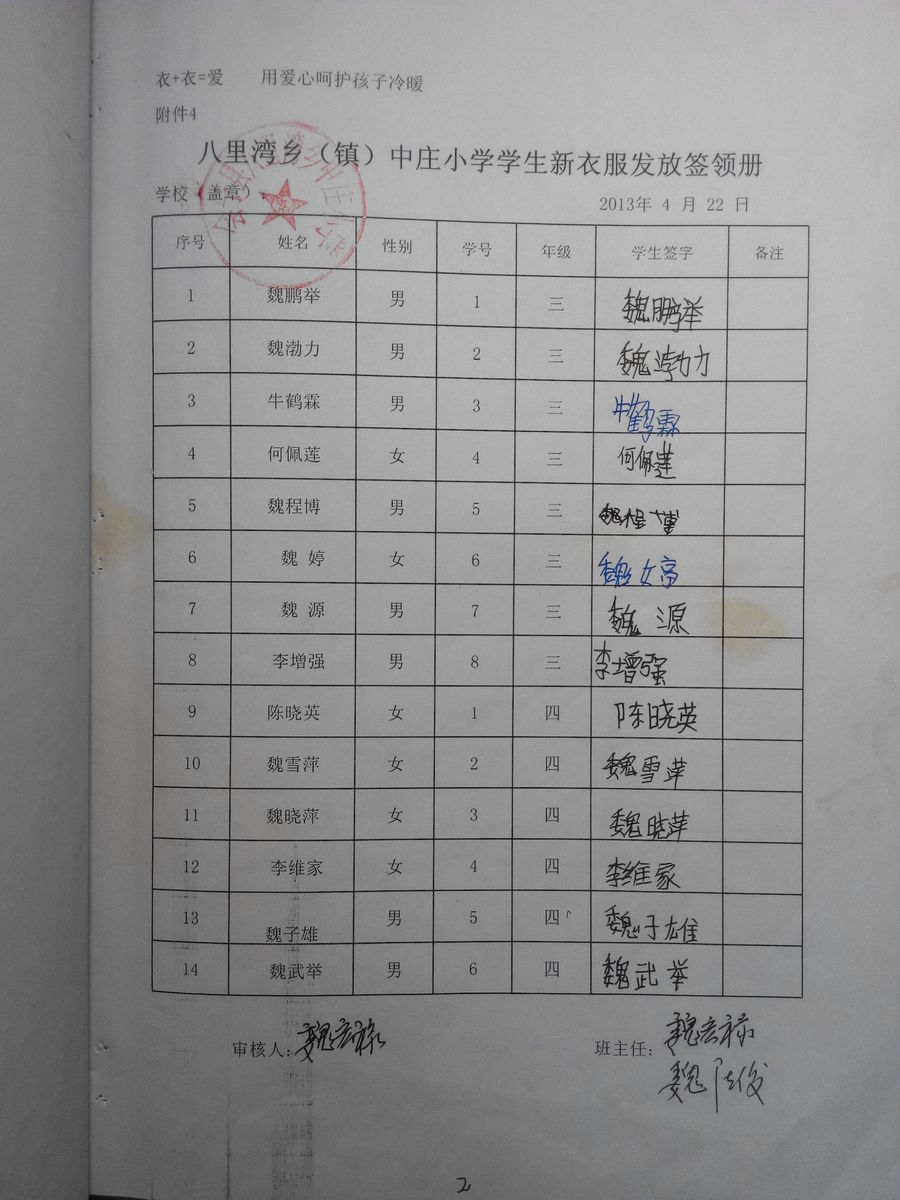 衣+衣=爱 用爱心呵护孩子冷暖
附件4
八里湾乡（镇）中庄小学学生新衣服发放签领册
学校（盖章） 2013年 4 月 22 日
序号 姓名 性别 学号 年级 学生签字 备注
1 魏鹏举 男 1 三 魏鹏举
2 魏渤力 男 2 三 魏渤力
3 牛鹤霖 男 3 三 牛鹤霖
4 何佩莲 女 4 三 何佩莲
5 魏程博 男 5 三 魏程博
6 魏 婷 女 6 三 魏婷
7 魏 源 男 7 三 魏源
8 李增强 男 8 三 李增强
9 陈晓英 女 1 四 陈晓英
10 魏雪萍 女 2 四 魏雪萍
11 魏晓萍 女 3 四 魏晓萍
12 李维家 女 4 四 李维家
13 魏子雄 男 5 四 魏子雄
14 魏武举 男 6 四 魏武举
审核人: 魏宏禄 班主任: 魏宏禄
魏 俊
2